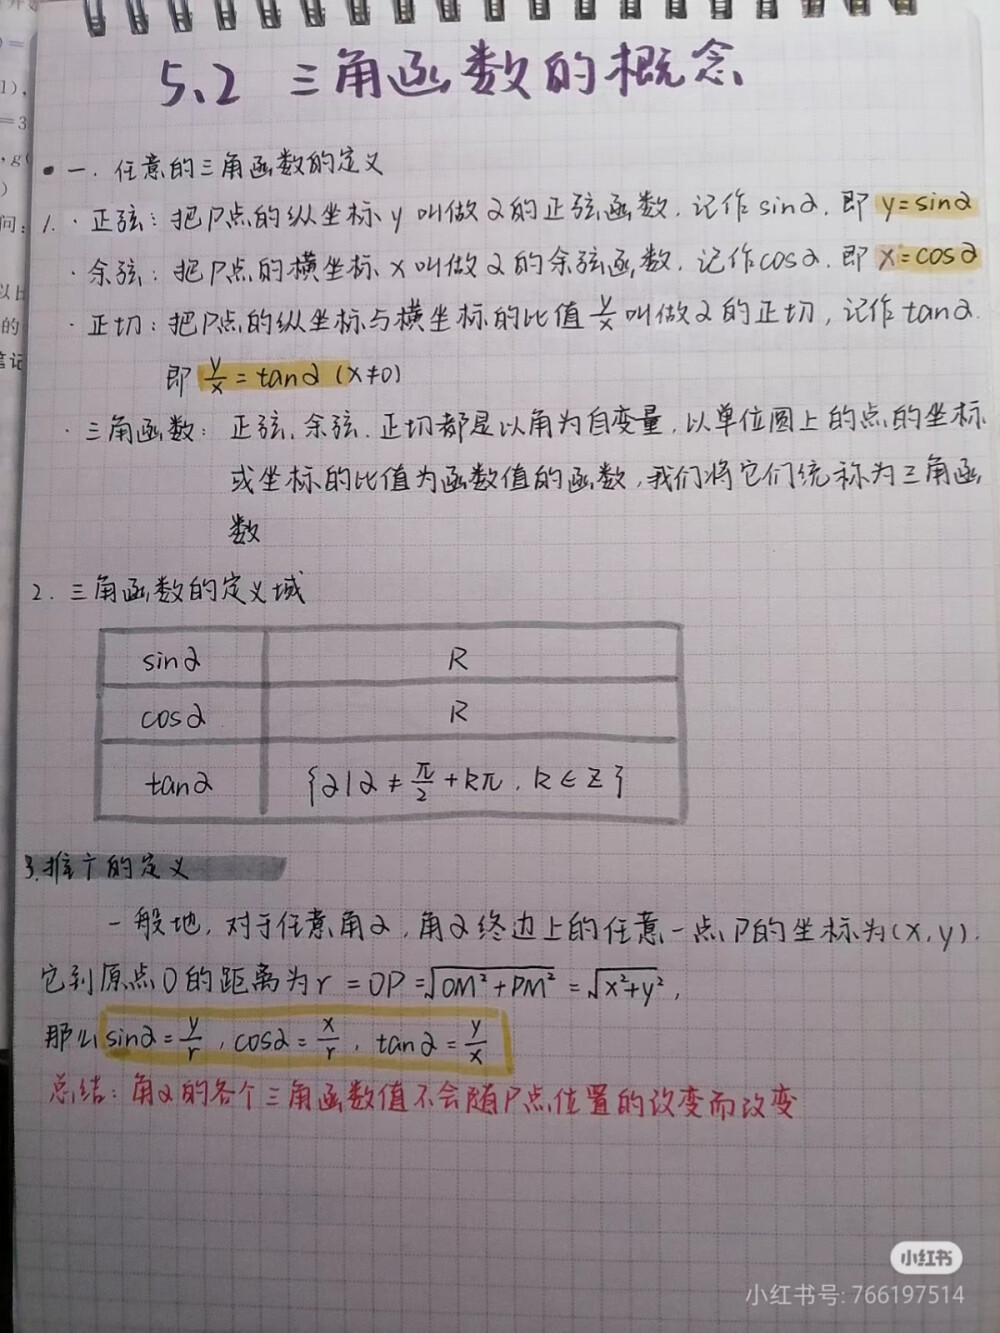 5.2 三角函数的概念
一. 任意的三角函数的定义
1. · 正弦: 把P点的纵坐标y叫做α的正弦函数, 记作sinα. 即 y=sinα
· 余弦: 把P点的横坐标x叫做α的余弦函数, 记作cosα. 即 x=cosα
· 正切: 把P点的纵坐标与横坐标的比值y/x叫做α的正切, 记作tanα.
即 y/x = tanα (x≠0)
· 三角函数: 正弦、余弦、正切都是以角为自变量, 以单位圆上的点的坐标
或坐标的比值为函数值的函数, 我们将它们统称为三角函
数
2. 三角函数的定义域
sinα R
cosα R
tanα {α|α≠π/2+kπ, k∈Z}
3.推广的定义
一般地, 对于任意角α, 角α终边上的任意一点P的坐标为(x,y).
它到原点O的距离为r = OP = √OM²+PM² = √x²+y²,
那么sinα = y/r, cosα = x/r, tanα = y/x
总结: 角α的各个三角函数值不会随P点位置的改变而改变
小红书
小红书号: 766197514
=
1),
=3
, g(
)
问:
以比
的
笔记